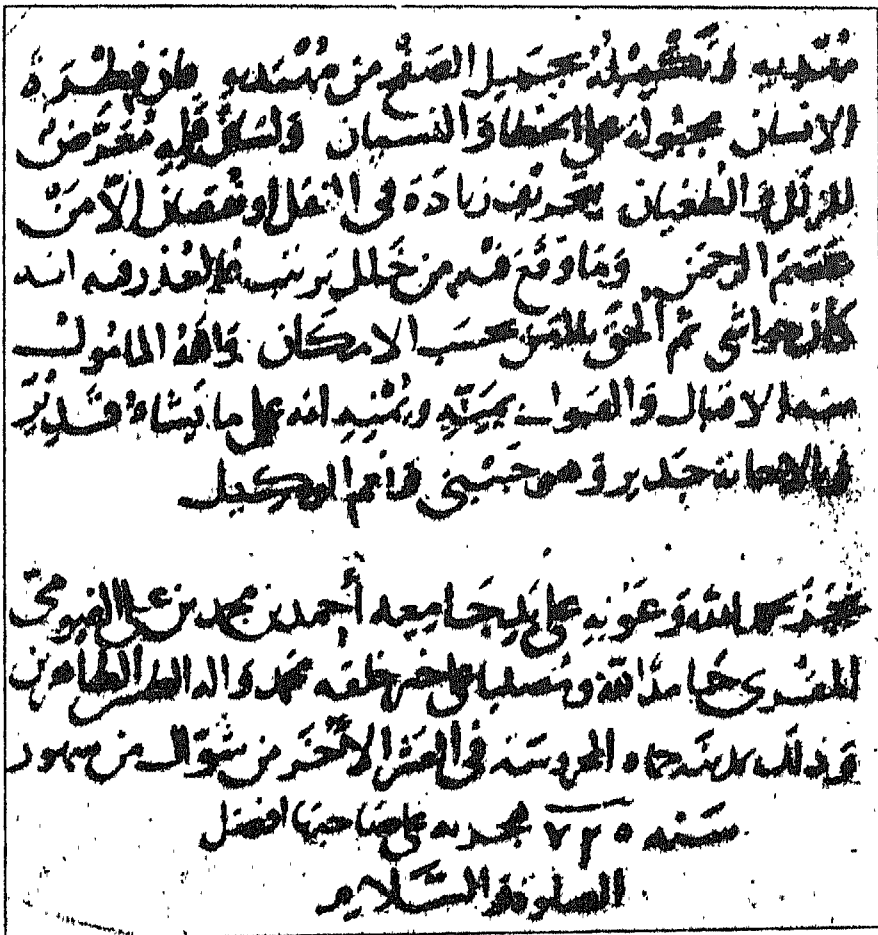 معتديه وتكميله بجميل الصفح من مهتديه فان فطرة
الانسان مجبولة على الخطا والنسيان ولسان قلمه معرض
للزلل والطغيان بتحريف زيادة في النقل او نقصان الا من
عصم الرحمن وما وقع فيه من خلل ترتيب فالعذر فيه انه
كان حواشي ثم الحق بالمتن بحسب الامكان والله المامول
منه الاقبال والصواب بمنه ويمنه انه على ما يشاء قدير
وبالاجابة جدير وهو حسبي ونعم الوكيل
نجز بحمد الله وعونه على يد جامعه أحمد بن محمد بن على الفيومي
المقري حامدا لله ومصليا على خير خلقه محمد واله الطيبين الطاهرين
وذلك بمدينة حماه المحروسة في العشر الأخر من شوال من شهور
سنه ٧٢٥ محمديه على صاحبها افضل
الصلوة والسلام